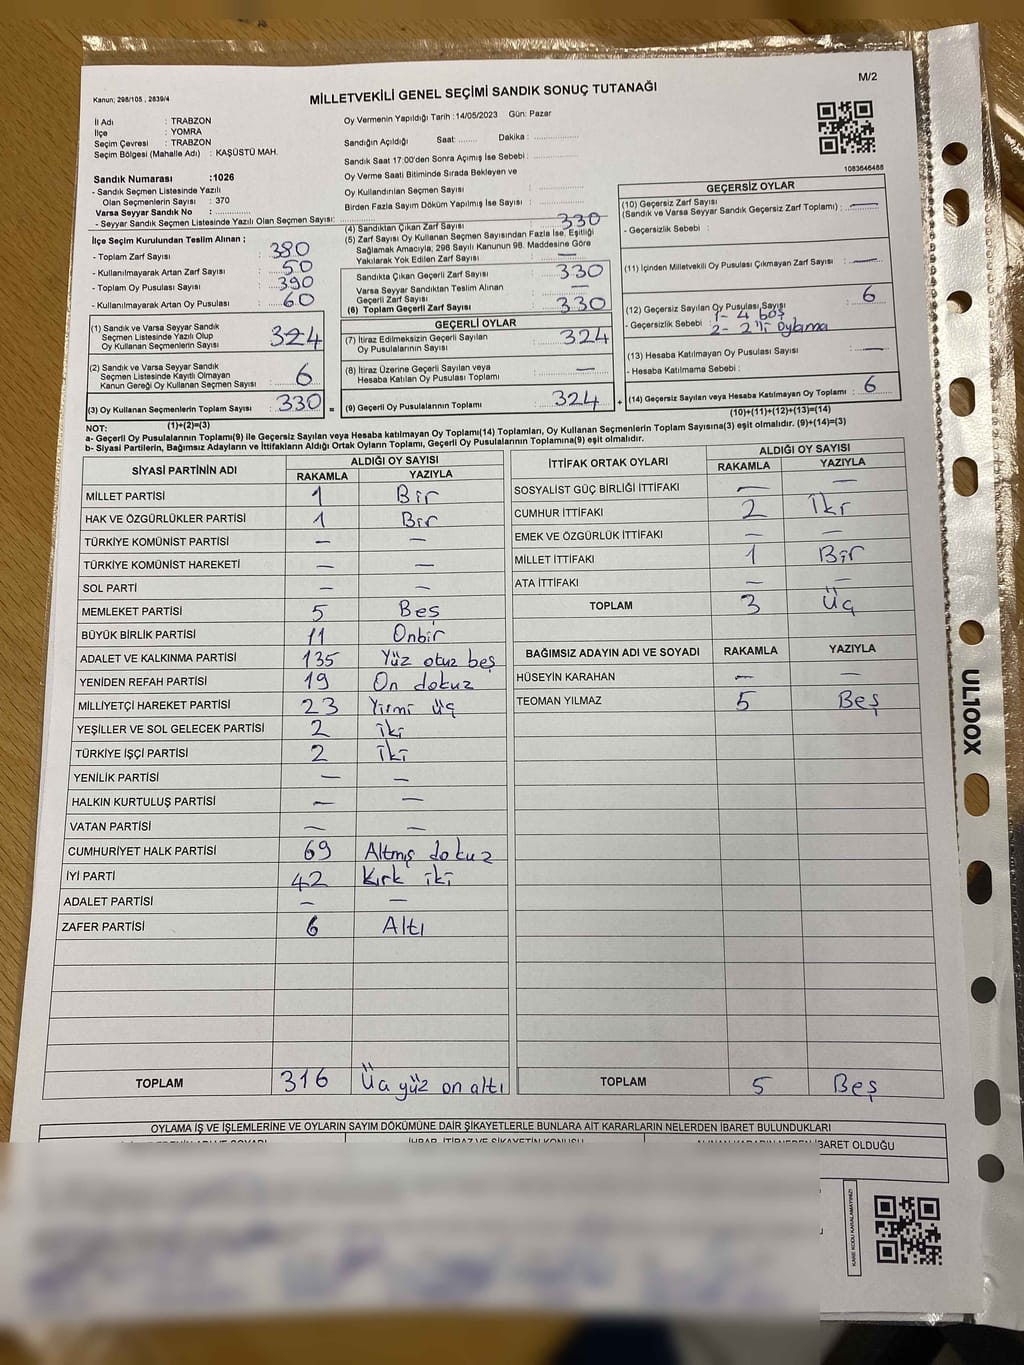 M/2
Kanun; 298/105 , 2839/4
MİLLETVEKİLİ GENEL SEÇİMİ SANDIK SONUÇ TUTANAĞI
İl Adı : TRABZON
İlçe : YOMRA
Seçim Çevresi : TRABZON
Seçim Bölgesi (Mahalle Adı) : KAŞÜSTÜ MAH.
Sandık Numarası :1026
- Sandık Seçmen Listesinde Yazılı
Olan Seçmenlerin Sayısı : 370
Varsa Seyyar Sandık No :
- Seyyar Sandık Seçmen Listesinde Yazılı Olan Seçmen Sayısı:
Oy Vermenin Yapıldığı Tarih :14/05/2023 Gün: Pazar
Sandığın Açıldığı Saat: Dakika :
Sandık Saat 17:00'den Sonra Açımış İse Sebebi :
Oy Verme Saati Bitiminde Sırada Bekleyen ve
Oy Kullandırılan Seçmen Sayısı :
Birden Fazla Sayım Döküm Yapılmış İse Sayısı :
1083646488
İlçe Seçim Kurulundan Teslim Alınan ;
- Toplam Zarf Sayısı : 380
- Kullanılmayarak Artan Zarf Sayısı : 50
- Toplam Oy Pusulası Sayısı : 390
- Kullanılmayarak Artan Oy Pusulası : 60
(1) Sandık ve Varsa Seyyar Sandık
Seçmen Listesinde Yazılı Olup
Oy Kullanan Seçmenlerin Sayısı : 324
(2) Sandık ve Varsa Seyyar Sandık
Seçmen Listesinde Kayıtlı Olmayan
Kanun Gereği Oy Kullanan Seçmen Sayısı : 6
(3) Oy Kullanan Seçmenlerin Toplam Sayısı : 330 =
(1)+(2)=(3)
(4) Sandıktan Çıkan Zarf Sayısı : 330
(5) Zarf Sayısı Oy Kullanan Seçmen Sayısından Fazla İse, Eşitliği
Sağlamak Amacıyla; 298 Sayılı Kanunun 98. Maddesine Göre
Yakılarak Yok Edilen Zarf Sayısı : —
Sandıkta Çıkan Geçerli Zarf Sayısı : 330
Varsa Seyyar Sandıktan Teslim Alınan
Geçerli Zarf Sayısı : —
(6) Toplam Geçerli Zarf Sayısı : 330
GEÇERLİ OYLAR
(7) İtiraz Edilmeksizin Geçerli Sayılan
Oy Pusulalarının Sayısı : 324
(8) İtiraz Üzerine Geçerli Sayılan veya
Hesaba Katılan Oy Pusulası Toplamı : —
(9) Geçerli Oy Pusulalarının Toplamı : 324 +
GEÇERSİZ OYLAR
(10) Geçersiz Zarf Sayısı
(Sandık ve Varsa Seyyar Sandık Geçersiz Zarf Toplamı) : —
- Geçersizlik Sebebi :
(11) İçinden Milletvekili Oy Pusulası Çıkmayan Zarf Sayısı : —
(12) Geçersiz Sayılan Oy Pusulası Sayısı : 6
- Geçersizlik Sebebi : 1- 4 boş
2- 2'li oylama
(13) Hesaba Katılmayan Oy Pusulası Sayısı : —
- Hesaba Katılmama Sebebi :
(14) Geçersiz Sayılan veya Hesaba Katılmayan Oy Toplamı : 6
(10)+(11)+(12)+(13)=(14)
NOT:
a- Geçerli Oy Pusulalarının Toplamı(9) ile Geçersiz Sayılan veya Hesaba Katılmayan Oy Toplamı(14) Toplamları, Oy Kullanan Seçmenlerin Toplam Sayısına(3) eşit olmalıdır. (9)+(14)=(3)
b- Siyasi Partilerin, Bağımsız Adayların ve İttifakların Aldığı Ortak Oyların Toplamı, Geçerli Oy Pusulalarının Toplamına(9) eşit olmalıdır.
SİYASİ PARTİNİN ADI ALDIĞI OY SAYISI
RAKAMLA YAZIYLA
MİLLET PARTİSİ 1 Bir
HAK VE ÖZGÜRLÜKLER PARTİSİ 1 Bir
TÜRKİYE KOMÜNİST PARTİSİ — —
TÜRKİYE KOMÜNİST HAREKETİ — —
SOL PARTİ — —
MEMLEKET PARTİSİ 5 Beş
BÜYÜK BİRLİK PARTİSİ 11 Onbir
ADALET VE KALKINMA PARTİSİ 135 Yüz otuz beş
YENİDEN REFAH PARTİSİ 19 On dokuz
MİLLİYETÇİ HAREKET PARTİSİ 23 Yirmi üç
YEŞİLLER VE SOL GELECEK PARTİSİ 2 iki
TÜRKİYE İŞÇİ PARTİSİ 2 iki
YENİLİK PARTİSİ — —
HALKIN KURTULUŞ PARTİSİ — —
VATAN PARTİSİ — —
CUMHURİYET HALK PARTİSİ 69 Altmış dokuz
İYİ PARTİ 42 Kırk iki
ADALET PARTİSİ — —
ZAFER PARTİSİ 6 Altı
TOPLAM 316 Üç yüz on altı
İTTİFAK ORTAK OYLARI ALDIĞI OY SAYISI
RAKAMLA YAZIYLA
SOSYALİST GÜÇ BİRLİĞİ İTTİFAKI — —
CUMHUR İTTİFAKI 2 İki
EMEK VE ÖZGÜRLÜK İTTİFAKI — —
MİLLET İTTİFAKI 1 Bir
ATA İTTİFAKI — —
TOPLAM 3 Üç
BAĞIMSIZ ADAYIN ADI VE SOYADI RAKAMLA YAZIYLA
HÜSEYİN KARAHAN — —
TEOMAN YILMAZ 5 Beş
TOPLAM 5 Beş
OYLAMA İŞ VE İŞLEMLERİNE VE OYLARIN SAYIM DÖKÜMÜNE DAİR ŞİKAYETLERLE BUNLARA AİT KARARLARIN NELERDEN İBARET BULUNDUKLARI
İHBAR, İTİRAZ VE ŞİKAYETİN KONUSU
ALINAN KARARIN NEDEN İBARET OLDUĞU
KARE KODU KARALAMAYINIZ!
UL100X